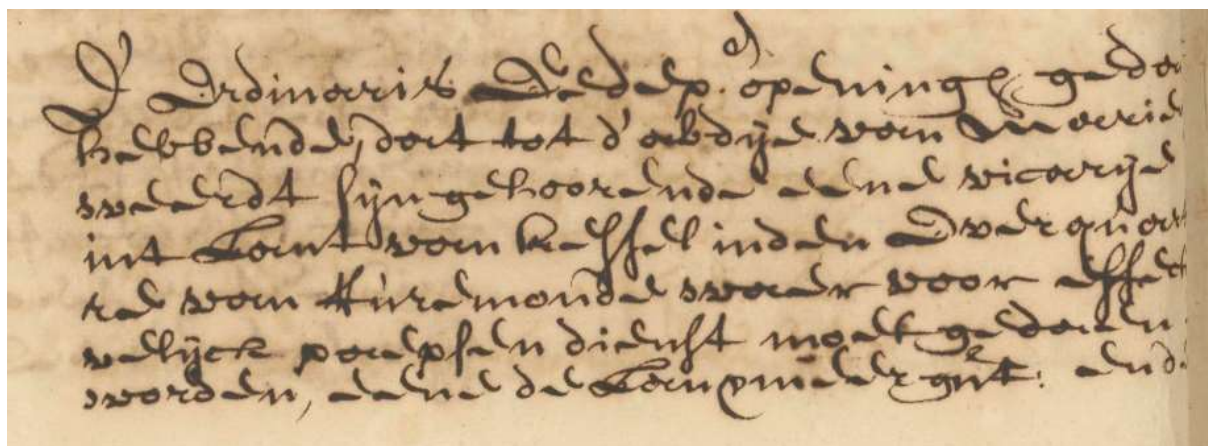 D' Ordinaris Gedep. openingh gedae
hebbende, dat tot d'abdije van Marie
weerdt sijn gehoorende eene vicarije
int Lant van Kessel inden Overquart
re van Rúremonde waer voor effect
velijck paepsen dienst moet gedaen
worden, eene de Lant gút: ende